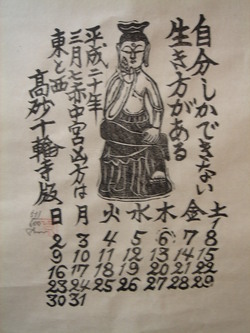 自分しかできない
生き方がある
平成二十年
三月七赤中宮凶方は
東と西
高砂十輪寺版
日 月 火 水 木 金 土
1
2 3 4 5 6 7 8
9 10 11 12 13 14 15
16 17 18 19 20 21 22
23 24 25 26 27 28 29
30 31